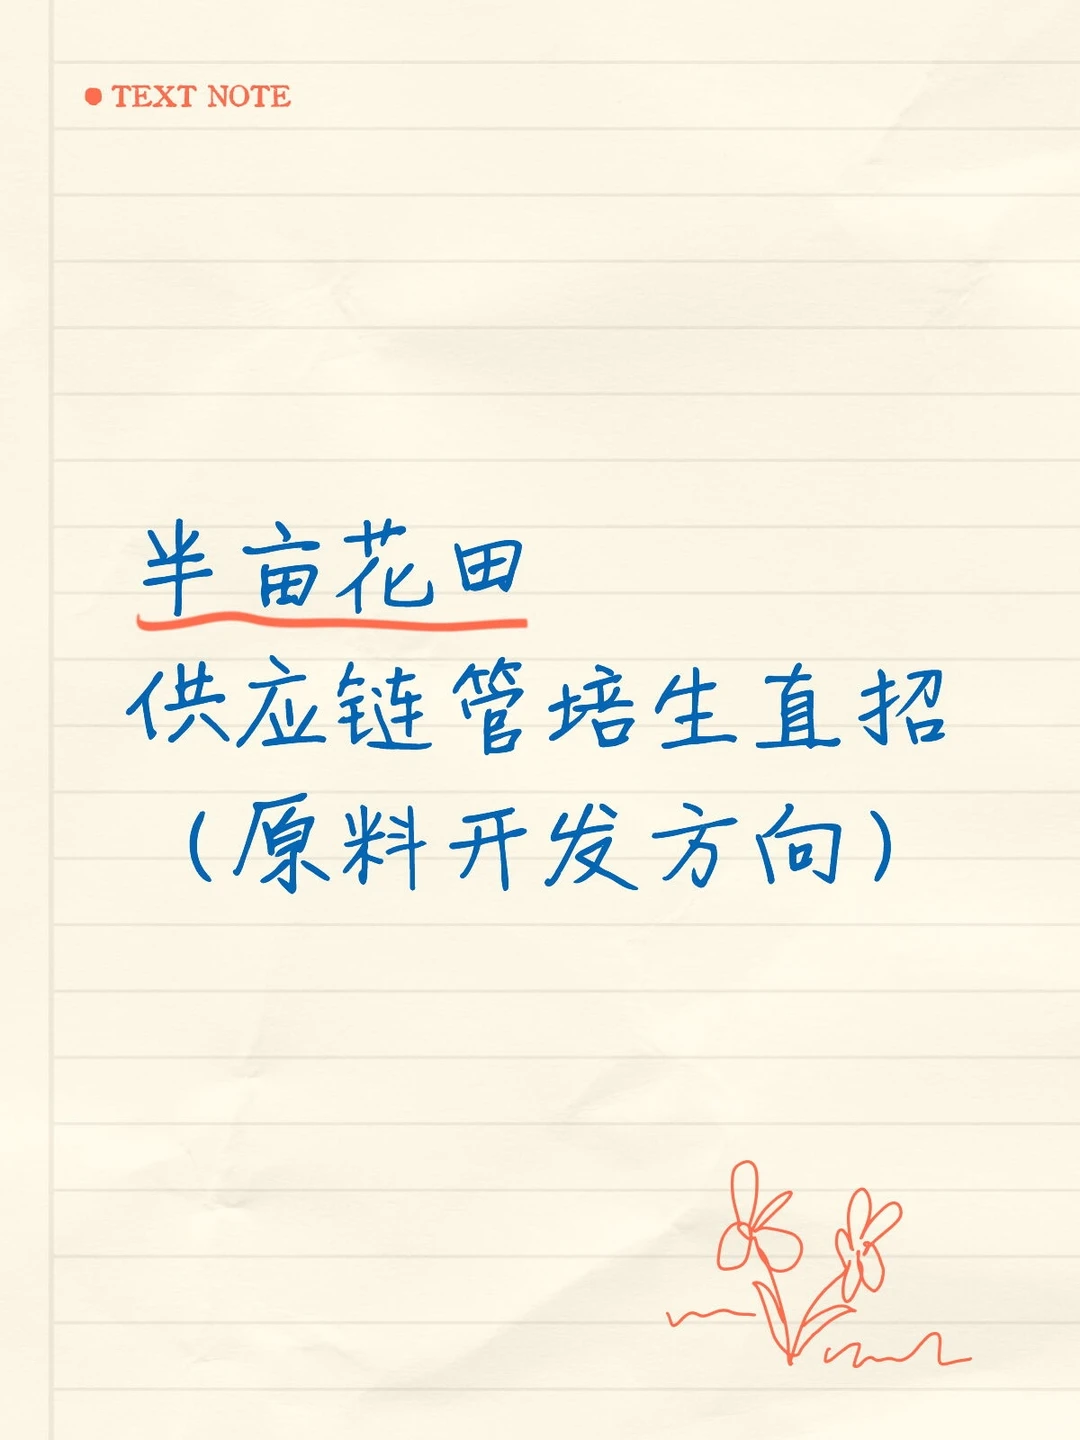 TEXT NOTE
半亩花田
供应链管培生直招
（原料开发方向）